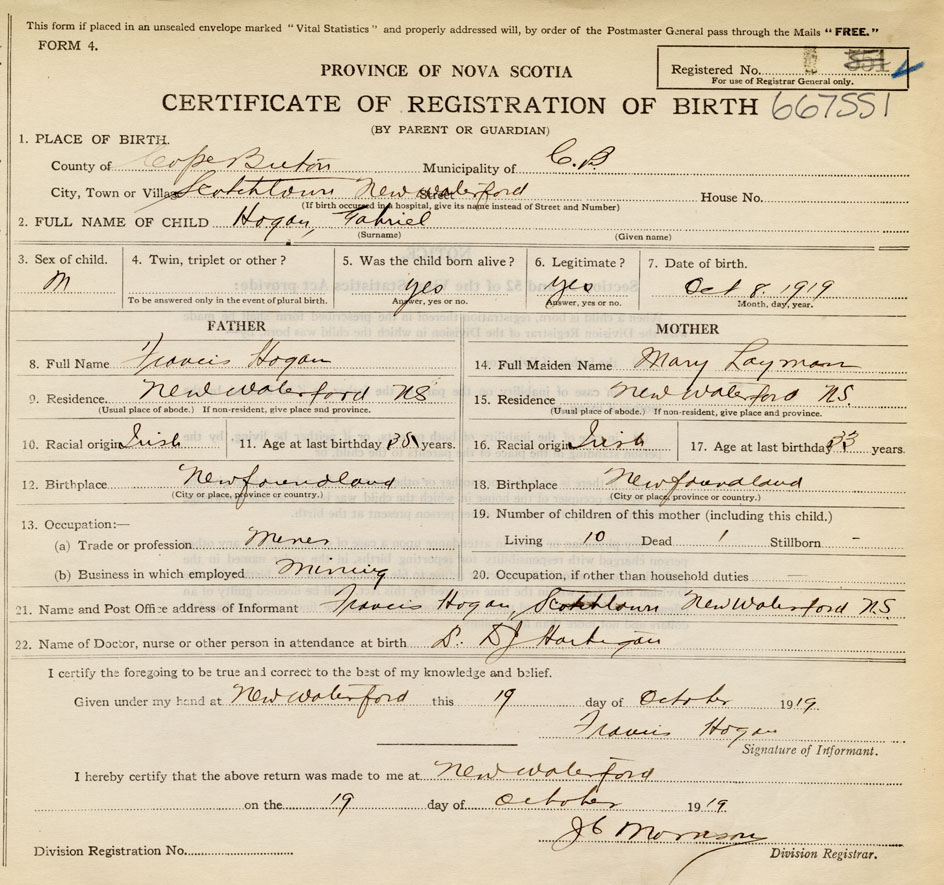 This form if placed in an unsealed envelope marked "Vital Statistics" and properly addressed will, by order of the Postmaster General pass through the Mails "FREE."
FORM 4.
Registered No. 351
For use of Registrar General only.
PROVINCE OF NOVA SCOTIA
CERTIFICATE OF REGISTRATION OF BIRTH 667551
(BY PARENT OR GUARDIAN)
1. PLACE OF BIRTH.
County of Cape Breton Municipality of C. B
City, Town or Village Scotchtown New Waterford Street House No.
(If birth occurred in a hospital, give its name instead of Street and Number)
2. FULL NAME OF CHILD Hogan, Gabriel
(Surname) (Given name)
3. Sex of child. 4. Twin, triplet or other ? 5. Was the child born alive ? 6. Legitimate ? 7. Date of birth.
M yes yes Oct 8. 1919
To be answered only in the event of plural birth. Answer, yes or no. Answer, yes or no. Month, day, year.
FATHER MOTHER
8. Full Name Francis Hogan 14. Full Maiden Name Mary Layman
9. Residence. New Waterford NS 15. Residence New Waterford N.S.
(Usual place of abode.) If non-resident, give place and province. (Usual place of abode.) If non-resident, give place and province.
10. Racial origin Irish 11. Age at last birthday years. 16. Racial origin Irish 17. Age at last birthday 33 years.
12. Birthplace Newfoundland 18. Birthplace Newfoundland
(City or place, province or country.) (City or place, province or country.)
13. Occupation:— 19. Number of children of this mother (including this child.)
(a) Trade or profession Miner Living 10 Dead 1 Stillborn -
(b) Business in which employed Mining 20. Occupation, if other than household duties
21. Name and Post Office address of Informant Francis Hogan, Scotchtown New Waterford N.S
22. Name of Doctor, nurse or other person in attendance at birth Hartigan
I certify the foregoing to be true and correct to the best of my knowledge and belief.
Given under my hand at New Waterford this 19 day of October 1919.
Francis Hogan
Signature of Informant.
I hereby certify that the above return was made to me at New Waterford
on the 19 day of October 1919.
Morrison
Division Registration No. Division Registrar.